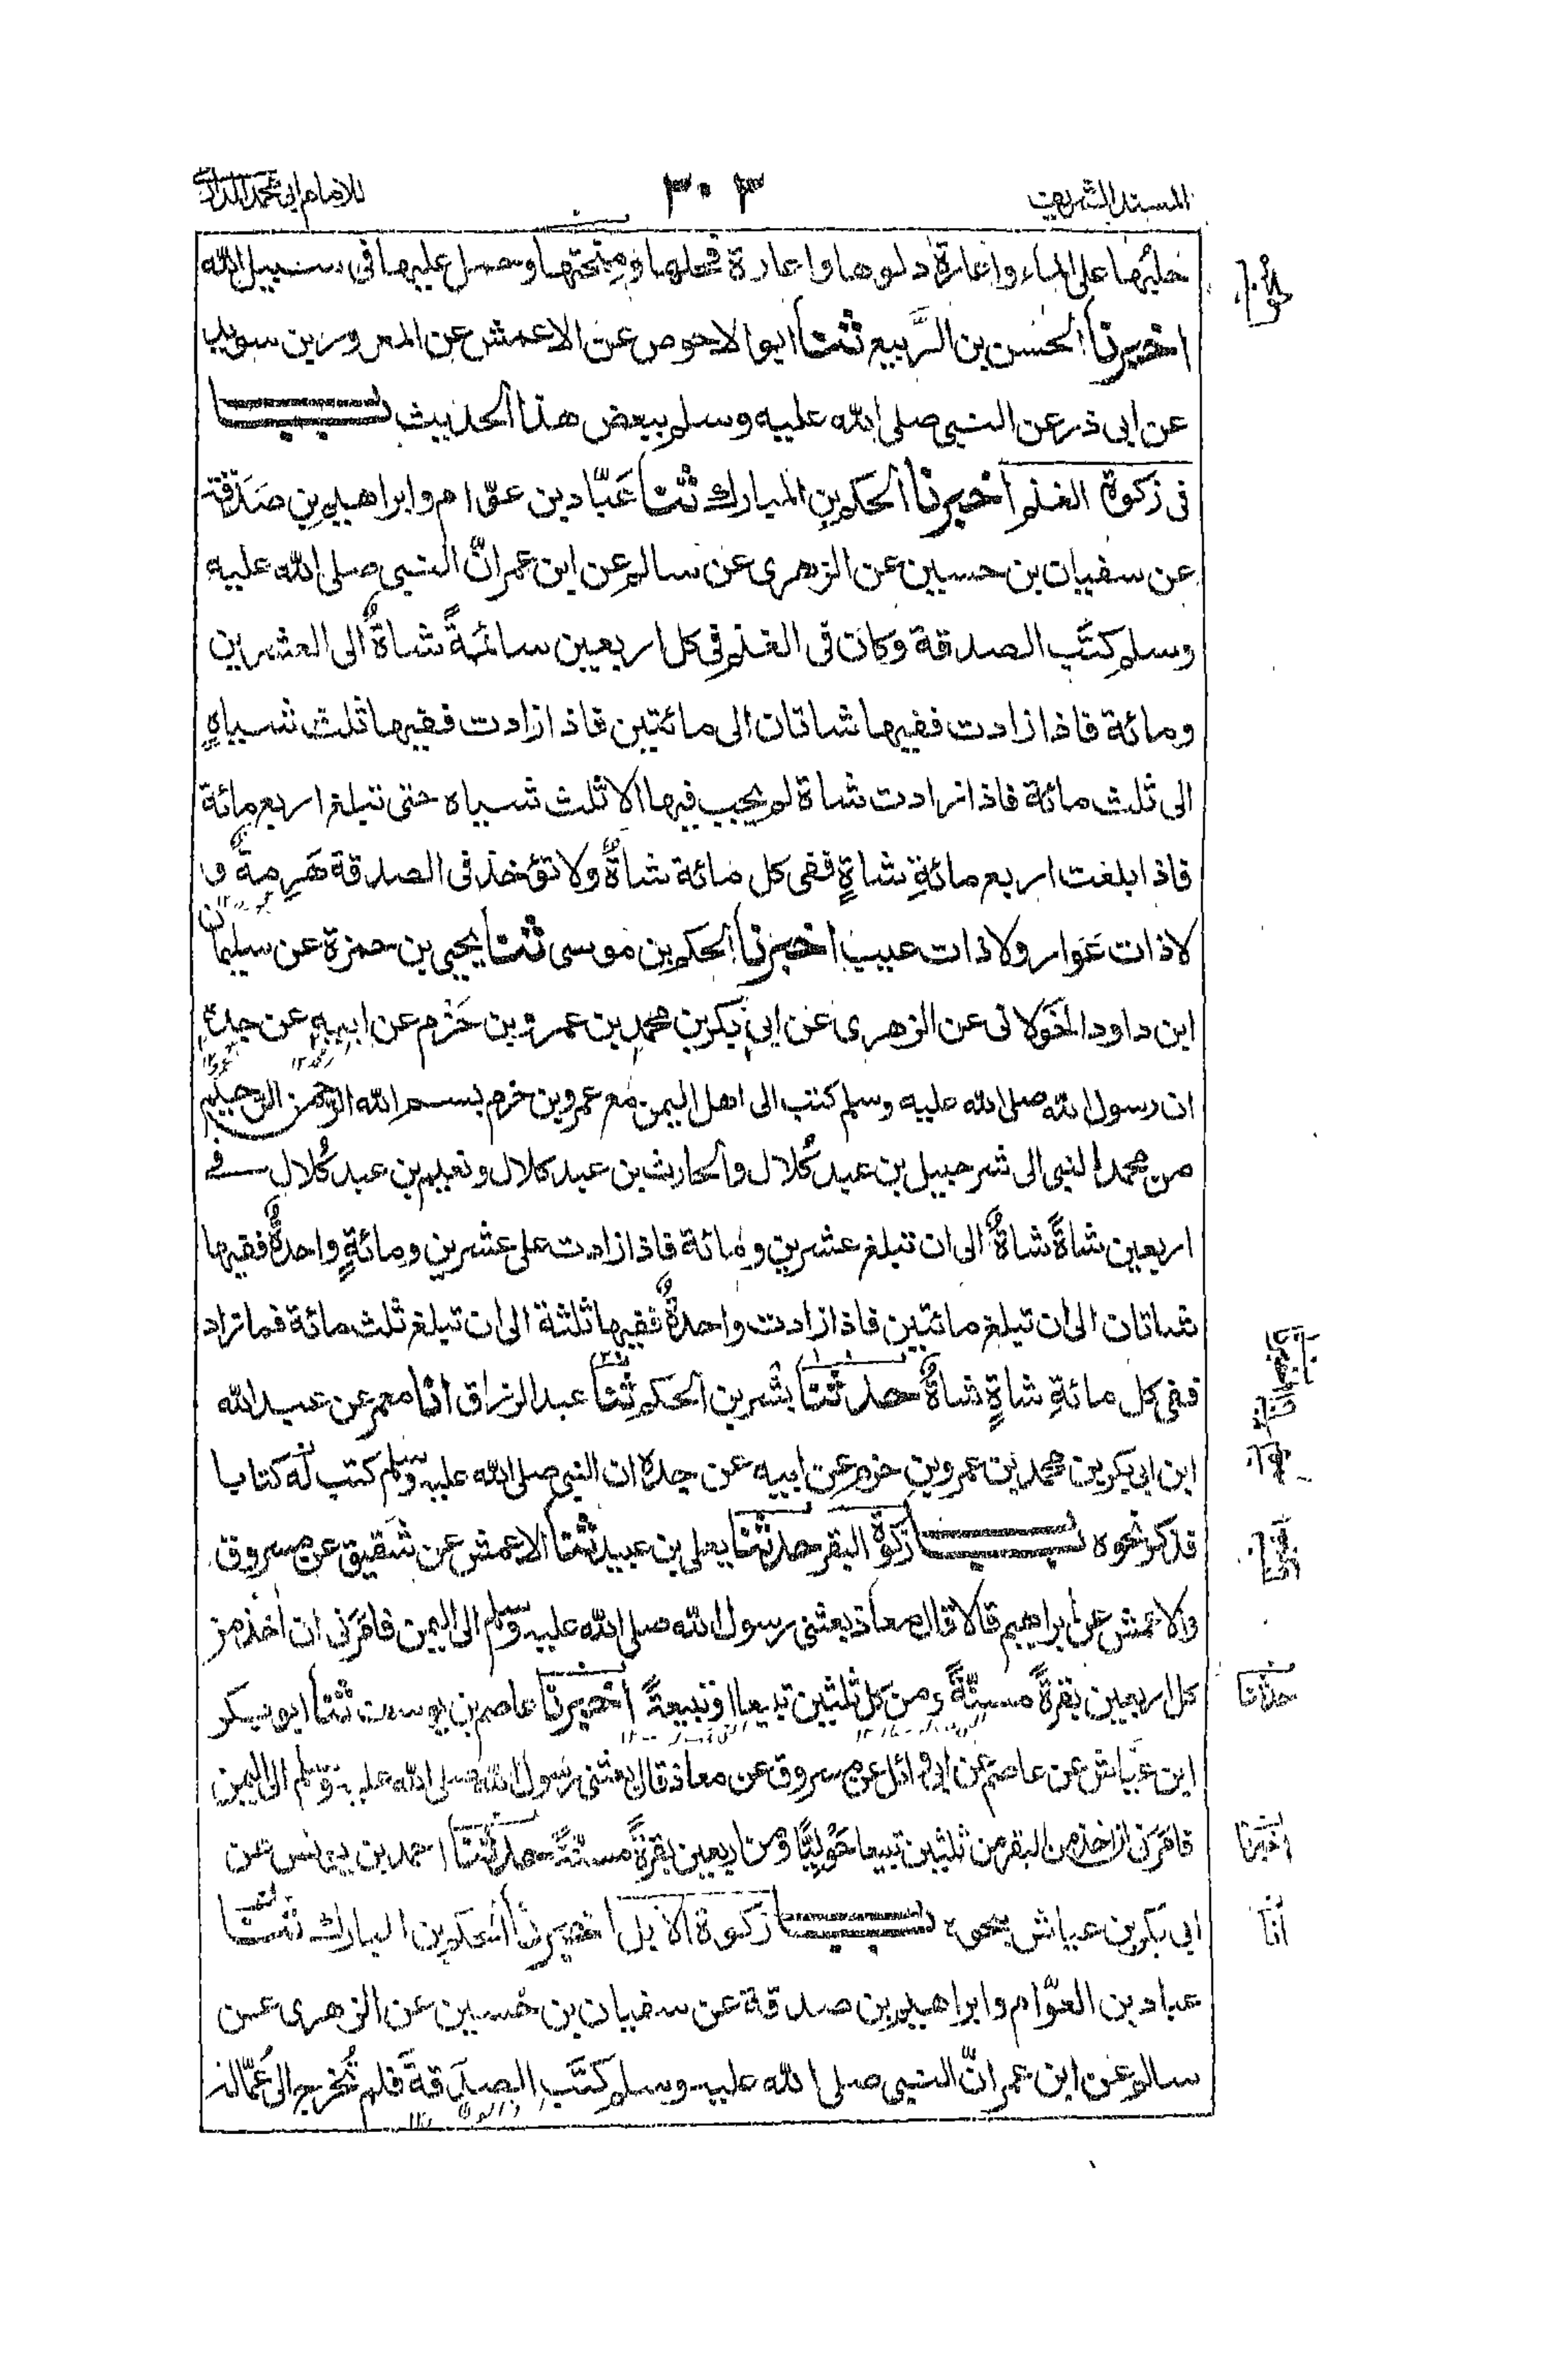 المسند الشريف
٣٠٣
للامام ابى محمد الدارمى
حلبُها على الماء واعارة دلوها واعارة فحلها ومنحتها وحمل عليها فى سبيل الله
اخبرنا الحسن بن الرَّبيع ثنا ابو الاحوص عن الاعمش عن المعرور بن سويد
عن ابى ذر عن النبى صلى الله عليه وسلم ببعض هذا الحديث باب
فى زكوة الغنم اخبرنا الحكم بن المبارك ثنا عَبّاد بن عوّام وابراهيم بن صَدَقة
عن سفيان بن حسين عن الزهرى عن سالم عن ابن عمر انَّ النبى صلى الله عليه
وسلم كتَب الصدقة وكان فى الغنم فى كل اربعين سائمةً شاةٌ الى العشرين
ومائة فاذا زادت ففيها شاتان الى مائتين فاذا زادت ففيها ثلث شياهٍ
الى ثلث مائة فاذا زادت شاة لم يجب فيها الا ثلث شياه حتى تبلغ اربع مائة
فاذا بلغت اربع مائةِ شاةٍ ففى كل مائة شاةٌ ولا تؤخذ فى الصدقة هَرِمةٌ و
لا ذات عَوار ولا ذات عيب اخبرنا الحكم بن موسى ثنا يحيى بن حمزة عن سليمان
ابن داود الخَولانى عن الزهرى عن ابى بكر بن محمد بن عمرو بن حَزم عن ابيهِ عن جدهٖ
ان رسول الله صلى الله عليه وسلم كتب الى اهل اليمن مع عمرو بن حزم بسم الله الرحمن الرحيم
من محمد النبى الى شرحبيل بن عبد كُلال والحارث بن عبد كلال ونعيم بن عبد كُلال فے
اربعين شاةً شاةٌ الى ان تبلغ عشرين ومائة فاذا زادت على عشرين ومائةٍ واحدةٌ ففيها
شاتان الى ان تبلغ مائتين فاذا زادت واحدةٌ ففيها ثلثة الى ان تبلغ ثلث مائة فما زاد
ففى كل مائةِ شاةٍ شاةٌ حدثنا بشر بن الحكم ثنا عبد الرزاق انا معمر عن عبد الله
ابن ابى بكر بن محمد بن عمرو بن حزم عن ابيه عن جده ان النبى صلى الله عليه وسلم كتب له كتابا
فذكر نحوه باب زكوة البقر حدثنا يعلى بن عبيد ثنا الاعمش عن شَقيق عن مسروق
والاعمش عن ابراهيم قالا قال معاذ بعثنى رسول الله صلى الله عليه وسلم الى اليمن فامَرَنى ان اٰخذ من
كل اربعين بقرةً مسنّةً ومن كل ثلثين تبيعا او تبيعةً اخبرنا عاصم بن يوسف ثنا ابو بكر
ابن عَيّاش عن عاصم عن ابى وائل عن مسروق عن معاذ قال بعثنى رسول الله صلى الله عليه وسلم الى اليمن
فامَرَنى ان اٰخذ من البقر من ثلثين تبيعا حَوْليًّا ومن اربعين بقرةً مسنّةً حدثنا احمد بن يونس عن
ابى بكر بن عياش بنحوه باب زكوة الابل اخبرنا الحكم بن المبارك ثنا
عباد بن العوّام وابراهيم بن صدقة عن سفيان بن حُسين عن الزهرى عن
سالم عن ابن عمر انَّ النبى صلى الله عليه وسلم كَتَبَ الصدَقةَ فلم تُخرج الى عُمّاله
حدثنا
اخبرنا
انا